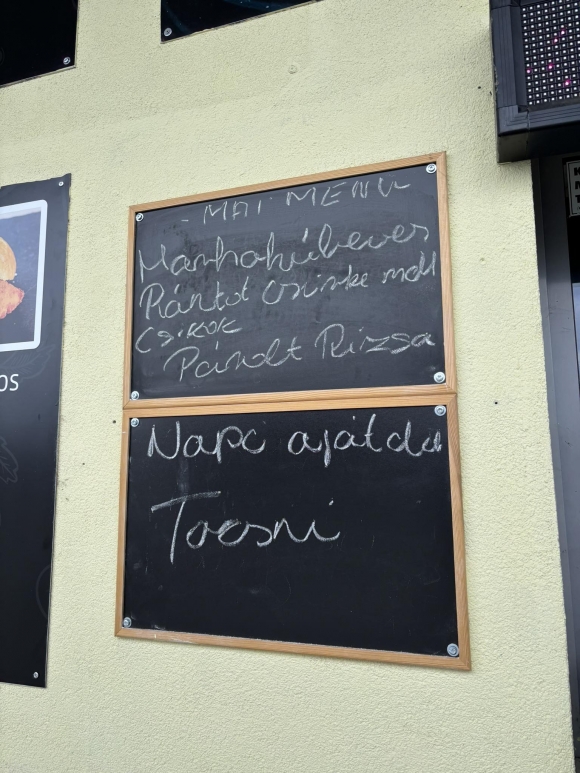 - MAI MENU
Marhahúsleves
Rántot csirke mell
Csikok
Párolt Rizsa
Napi ajálda
Tócsni
OS